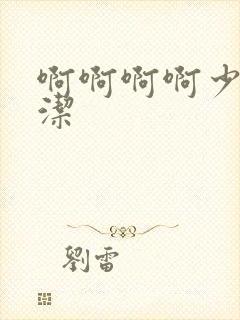 啊啊啊啊少
潔
劉雷